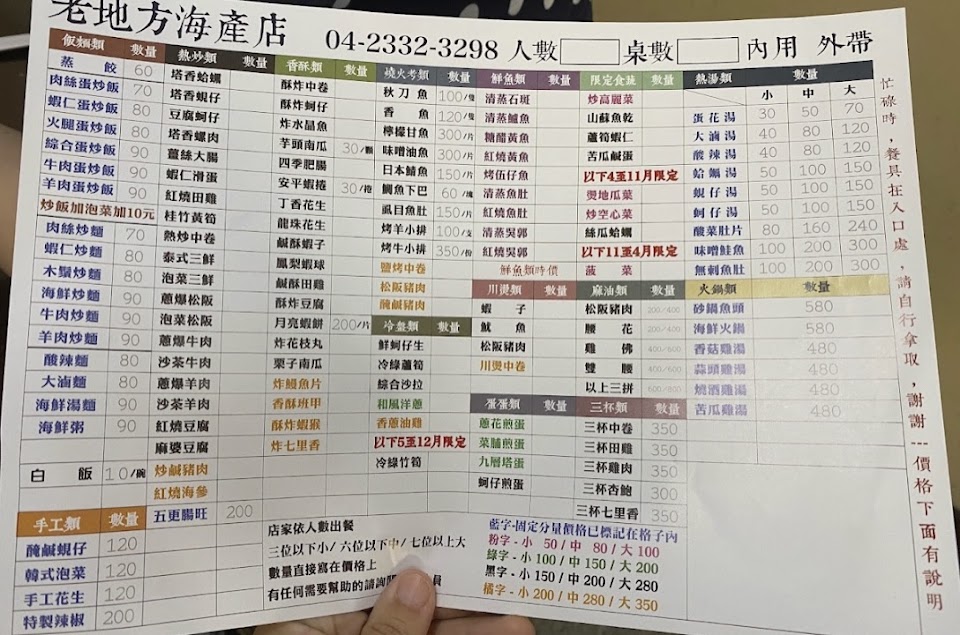 老地方海產店 04-2332-3298 人數 桌數 內用 外帶
飯麵類 數量
蒸餃 60
肉絲蛋炒飯 70
蝦仁蛋炒飯 80
火腿蛋炒飯 90
綜合蛋炒飯 90
牛肉蛋炒飯 90
羊肉蛋炒飯 90
炒飯加泡菜加10元
肉絲炒麵 70
蝦仁炒麵 80
木鬚炒麵 80
海鮮炒麵 90
牛肉炒麵 90
羊肉炒麵 90
酸辣麵 80
大滷麵 80
海鮮湯麵 90
海鮮粥 90
白飯 10/碗
手工類 數量
醃鹹蜆仔 120
韓式泡菜 120
手工花生 120
特製辣椒 200
熱炒類 數量
塔香蛤蠣
塔香蜆仔
豆腐蚵仔
塔香螺肉
薑絲大腸
蝦仁滑蛋
紅燒田雞
桂竹黃筍
熱炒中卷
泰式三鮮
泡菜三鮮
蔥爆松阪
泡菜松阪
蔥爆牛肉
沙茶牛肉
蔥爆羊肉
沙茶羊肉
紅燒豆腐
麻婆豆腐
炒鹹豬肉
紅燒海參
五更腸旺 200
香酥類 數量
酥炸中卷
酥炸蚵仔
炸水晶魚
芋頭南瓜 30/顆
四季肥腸
安平蝦捲 30/捲
丁香花生
龍珠花生
鹹酥蝦子
鳳梨蝦球
鹹酥田雞
酥炸豆腐
月亮蝦餅 200/片
炸花枝丸
栗子南瓜
炸鰻魚片
香酥班甲
酥炸蝦猴
炸七里香
燒火考類 數量
秋刀魚 100/隻
香魚 120/隻
檸檬甘魚 300/片
味噌油魚 300/片
日本鯖魚 150/片
鯛魚下巴 60/塊
虱目魚肚 150/片
烤羊小排 100/支
烤牛小排 350/份
鹽烤中卷
松阪豬肉
醃鹹豬肉
冷盤類 數量
鮮蚵仔生
冷綠蘆筍
綜合沙拉
和風洋蔥
香蔥油雞
以下5至12月限定
冷綠竹筍
鮮魚類 數量
清蒸石斑
清蒸鱸魚
糖醋黃魚
紅燒黃魚
烤伍仔魚
清蒸魚肚
紅燒魚肚
清蒸吳郭
紅燒吳郭
鮮魚類時價
川燙類 數量
蝦子
魷魚
松阪豬肉
川燙中卷
蛋蛋類 數量
蔥花煎蛋
菜脯煎蛋
九層塔蛋
蚵仔煎蛋
限定食蔬 數量
炒高麗菜
山蘇魚乾
蘆筍蝦仁
苦瓜鹹蛋
以下4至11月限定
燙地瓜葉
炒空心菜
絲瓜蛤蠣
以下11至4月限定
菠菜
麻油類 數量
松阪豬肉 200/400
腰花 200/400
雞佛 400/600
雙腰 400/600
以上三拼 600/800
三杯類 數量
三杯中卷 350
三杯田雞 350
三杯雞肉 350
三杯杏鮑 300
三杯七里香 350
熱湯類 數量
小 中 大
蛋花湯 30 50 70
大滷湯 40 80 120
酸辣湯 40 80 120
蛤蠣湯 50 100 150
蜆仔湯 50 100 150
蚵仔湯 50 100 150
酸菜肚片 80 160 240
味噌鮭魚 100 200 300
無刺魚肚 100 200 300
火鍋類 數量
砂鍋魚頭 580
海鮮火鍋 580
香菇雞湯 480
蒜頭雞湯 480
燒酒雞湯 480
苦瓜雞湯 480
店家依人數出餐
三位以下小/六位以下中/七位以上大
數量直接寫在價格上
有任何需要幫助的請詢 員
藍字-固定分量價格已標記在格子內
粉字-小 50/中 80/大 100
綠字-小 100/中 150/大 200
黑字-小 150/中 200/大 280
橘字-小 200/中 280/大 350
忙碌時,餐具在入口處,請自行拿取,謝謝---價格下面有說明